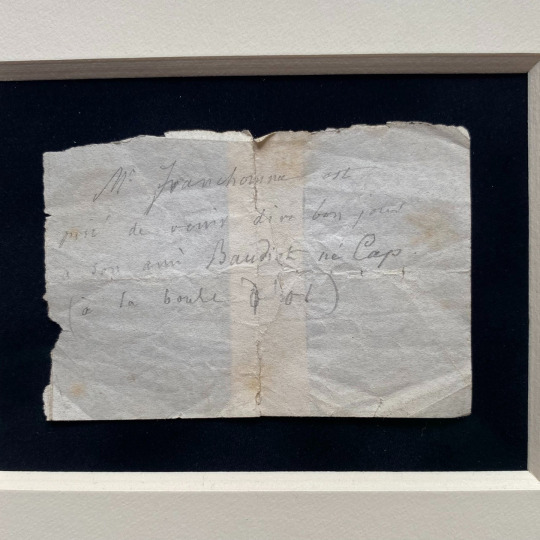 Mr. franchomme est
prié de venir dire bon jour
a son ami Baudiot né Cap.
(à la boule d'or)